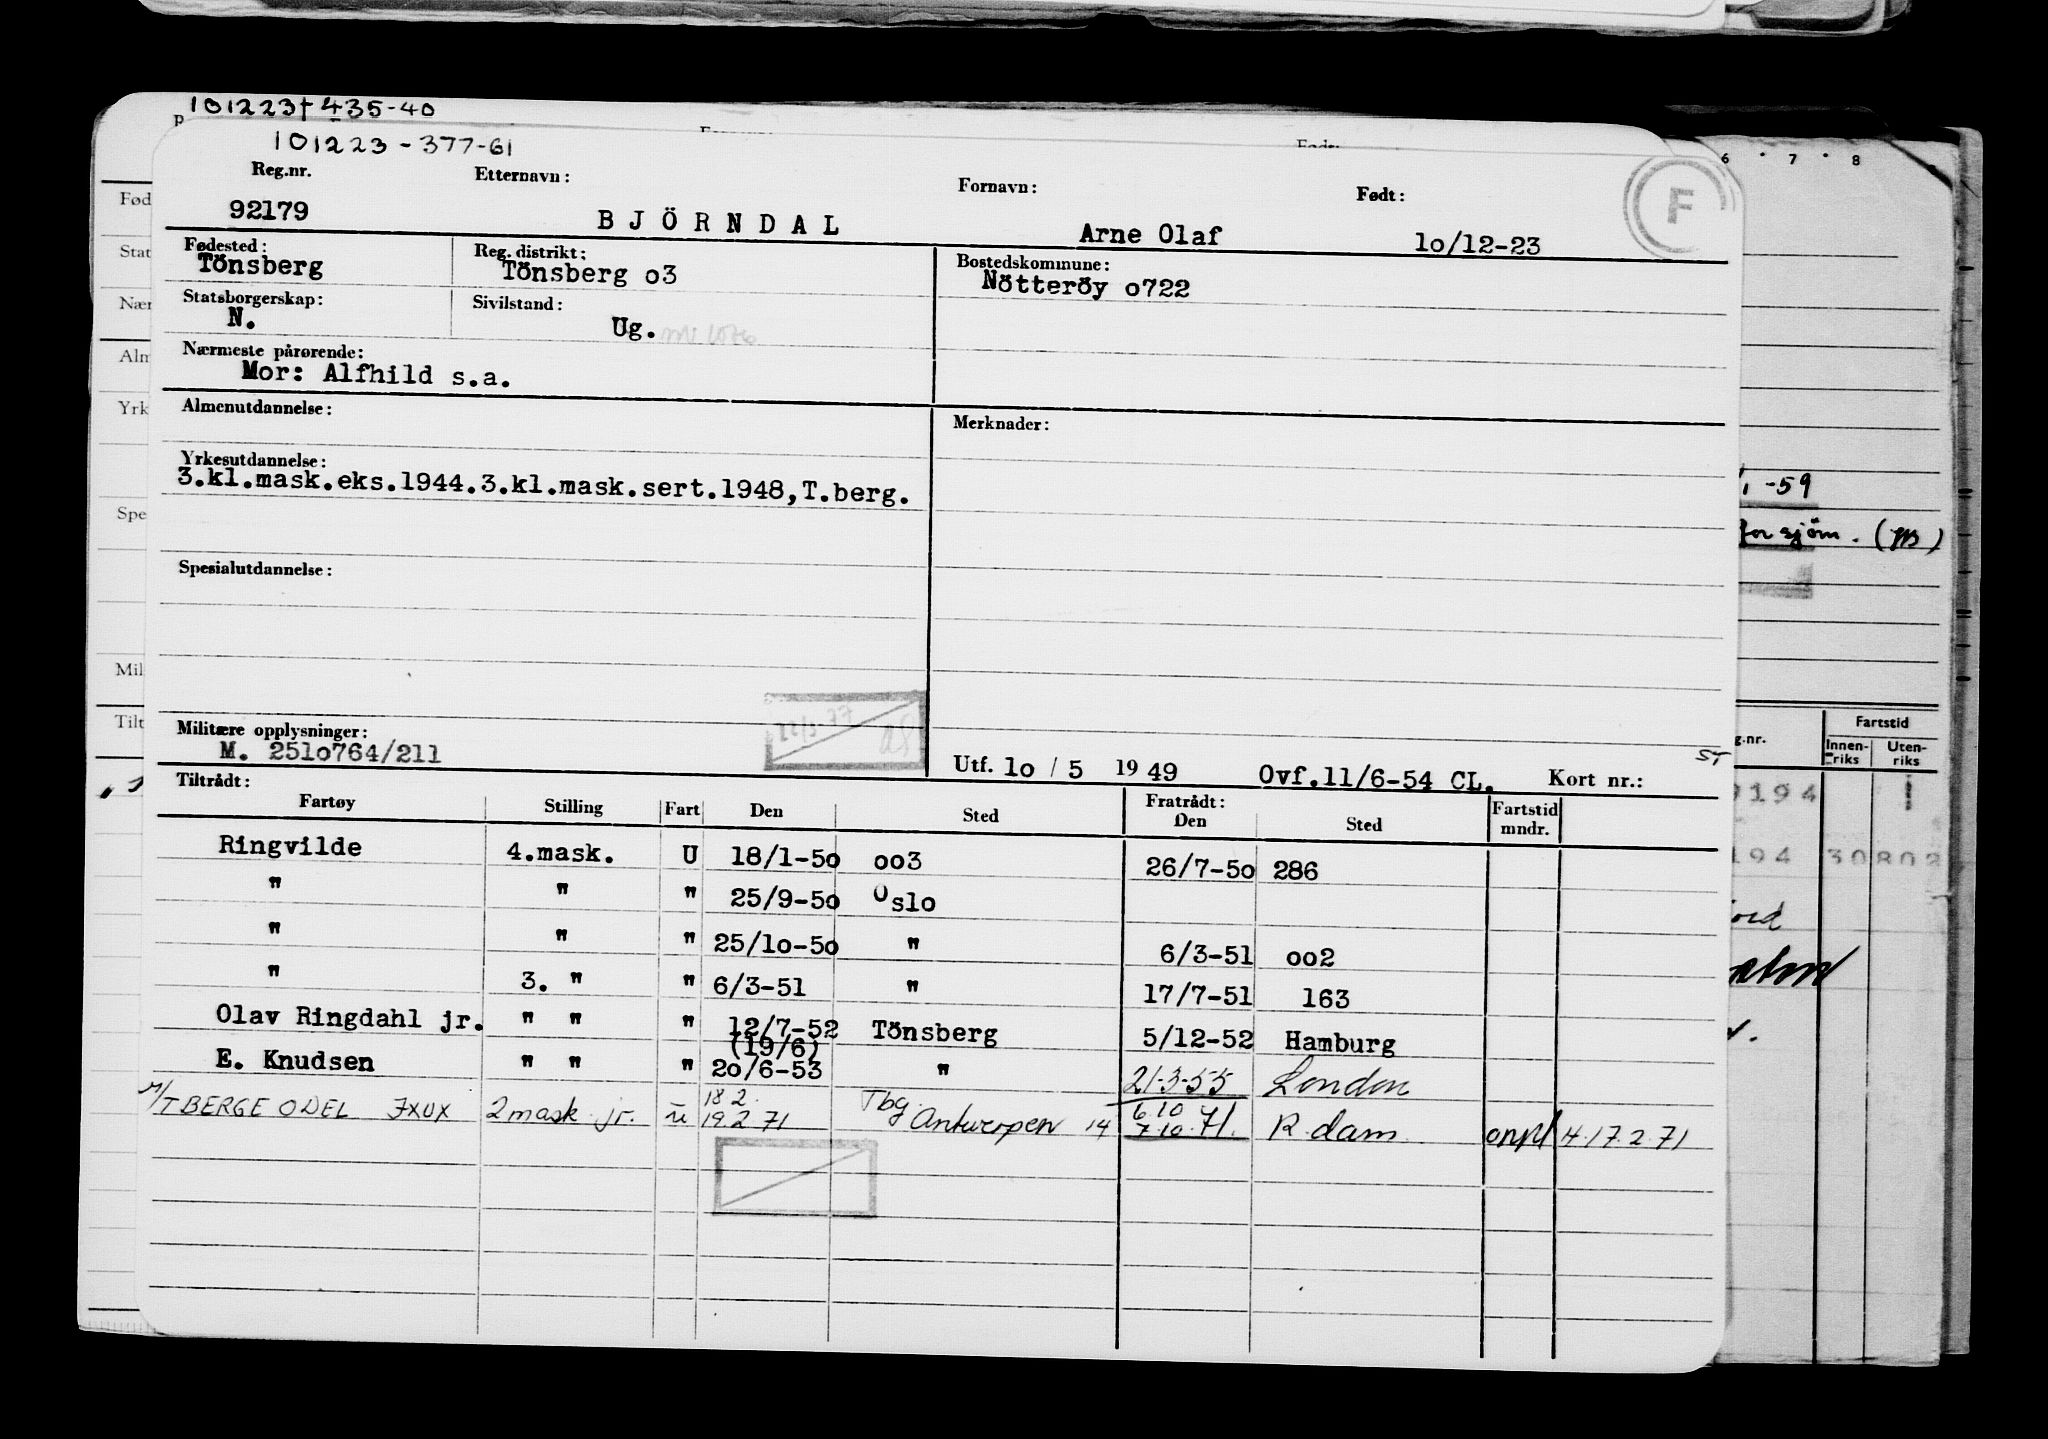 101223+435-40
101223-377-61
Reg.nr. Etternavn: Fornavn: Født:
92179 BJÖRNDAL Arne Olaf 1o/12-23
F
Fødested: Reg. distrikt: Bostedskommune:
Tönsberg Tönsberg o3 Nötteröy o722
Statsborgerskap: Sivilstand:
N. Ug.
Nærmeste pårørende:
Mor: Alfhild s.a.
Almenutdannelse: Merknader:
Yrkesutdannelse:
3.kl.mask.eks.1944.3.kl.mask.sert.1948,T.berg.
Spesialutdannelse:
Militære opplysninger:
M. 251o764/211
Utf. 1o / 5 19 49 Ovf.11/6-54 CL. Kort nr.: ST
Tiltrådt: Fratrådt:
Fartøy Stilling Fart Den Sted Den Sted Fartstid mndr.
Ringvilde 4.mask. U 18/1-5o oo3 26/7-5o 286
" " " 25/9-5o Oslo
" " " 25/1o-5o " 6/3-51 oo2
" 3. " " 6/3-51 " 17/7-51 163
Olav Ringdahl jr. " " " 12/7-52 Tönsberg 5/12-52 Hamburg
(19/6)
E. Knudsen " " " 2o/6-53 " 21-3-55 London
18 2. Tbg 6.10
M/T BERGE ODEL JXUX 2 mask jr. u 19.2 71 Antwerpen 14 7.10.71. R.dam 4.17.2.71
Fød
Stat
Nær
Alm
Yrk
Spe
Mil
Tilt
6 7 8
-59
for sjöm.
g.nr. Fartstid
Innen-riks Uten-riks
9194 1
194 30802